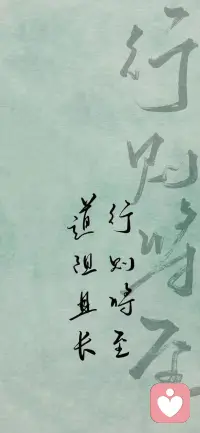 道阻且长
行则将至
行则将至